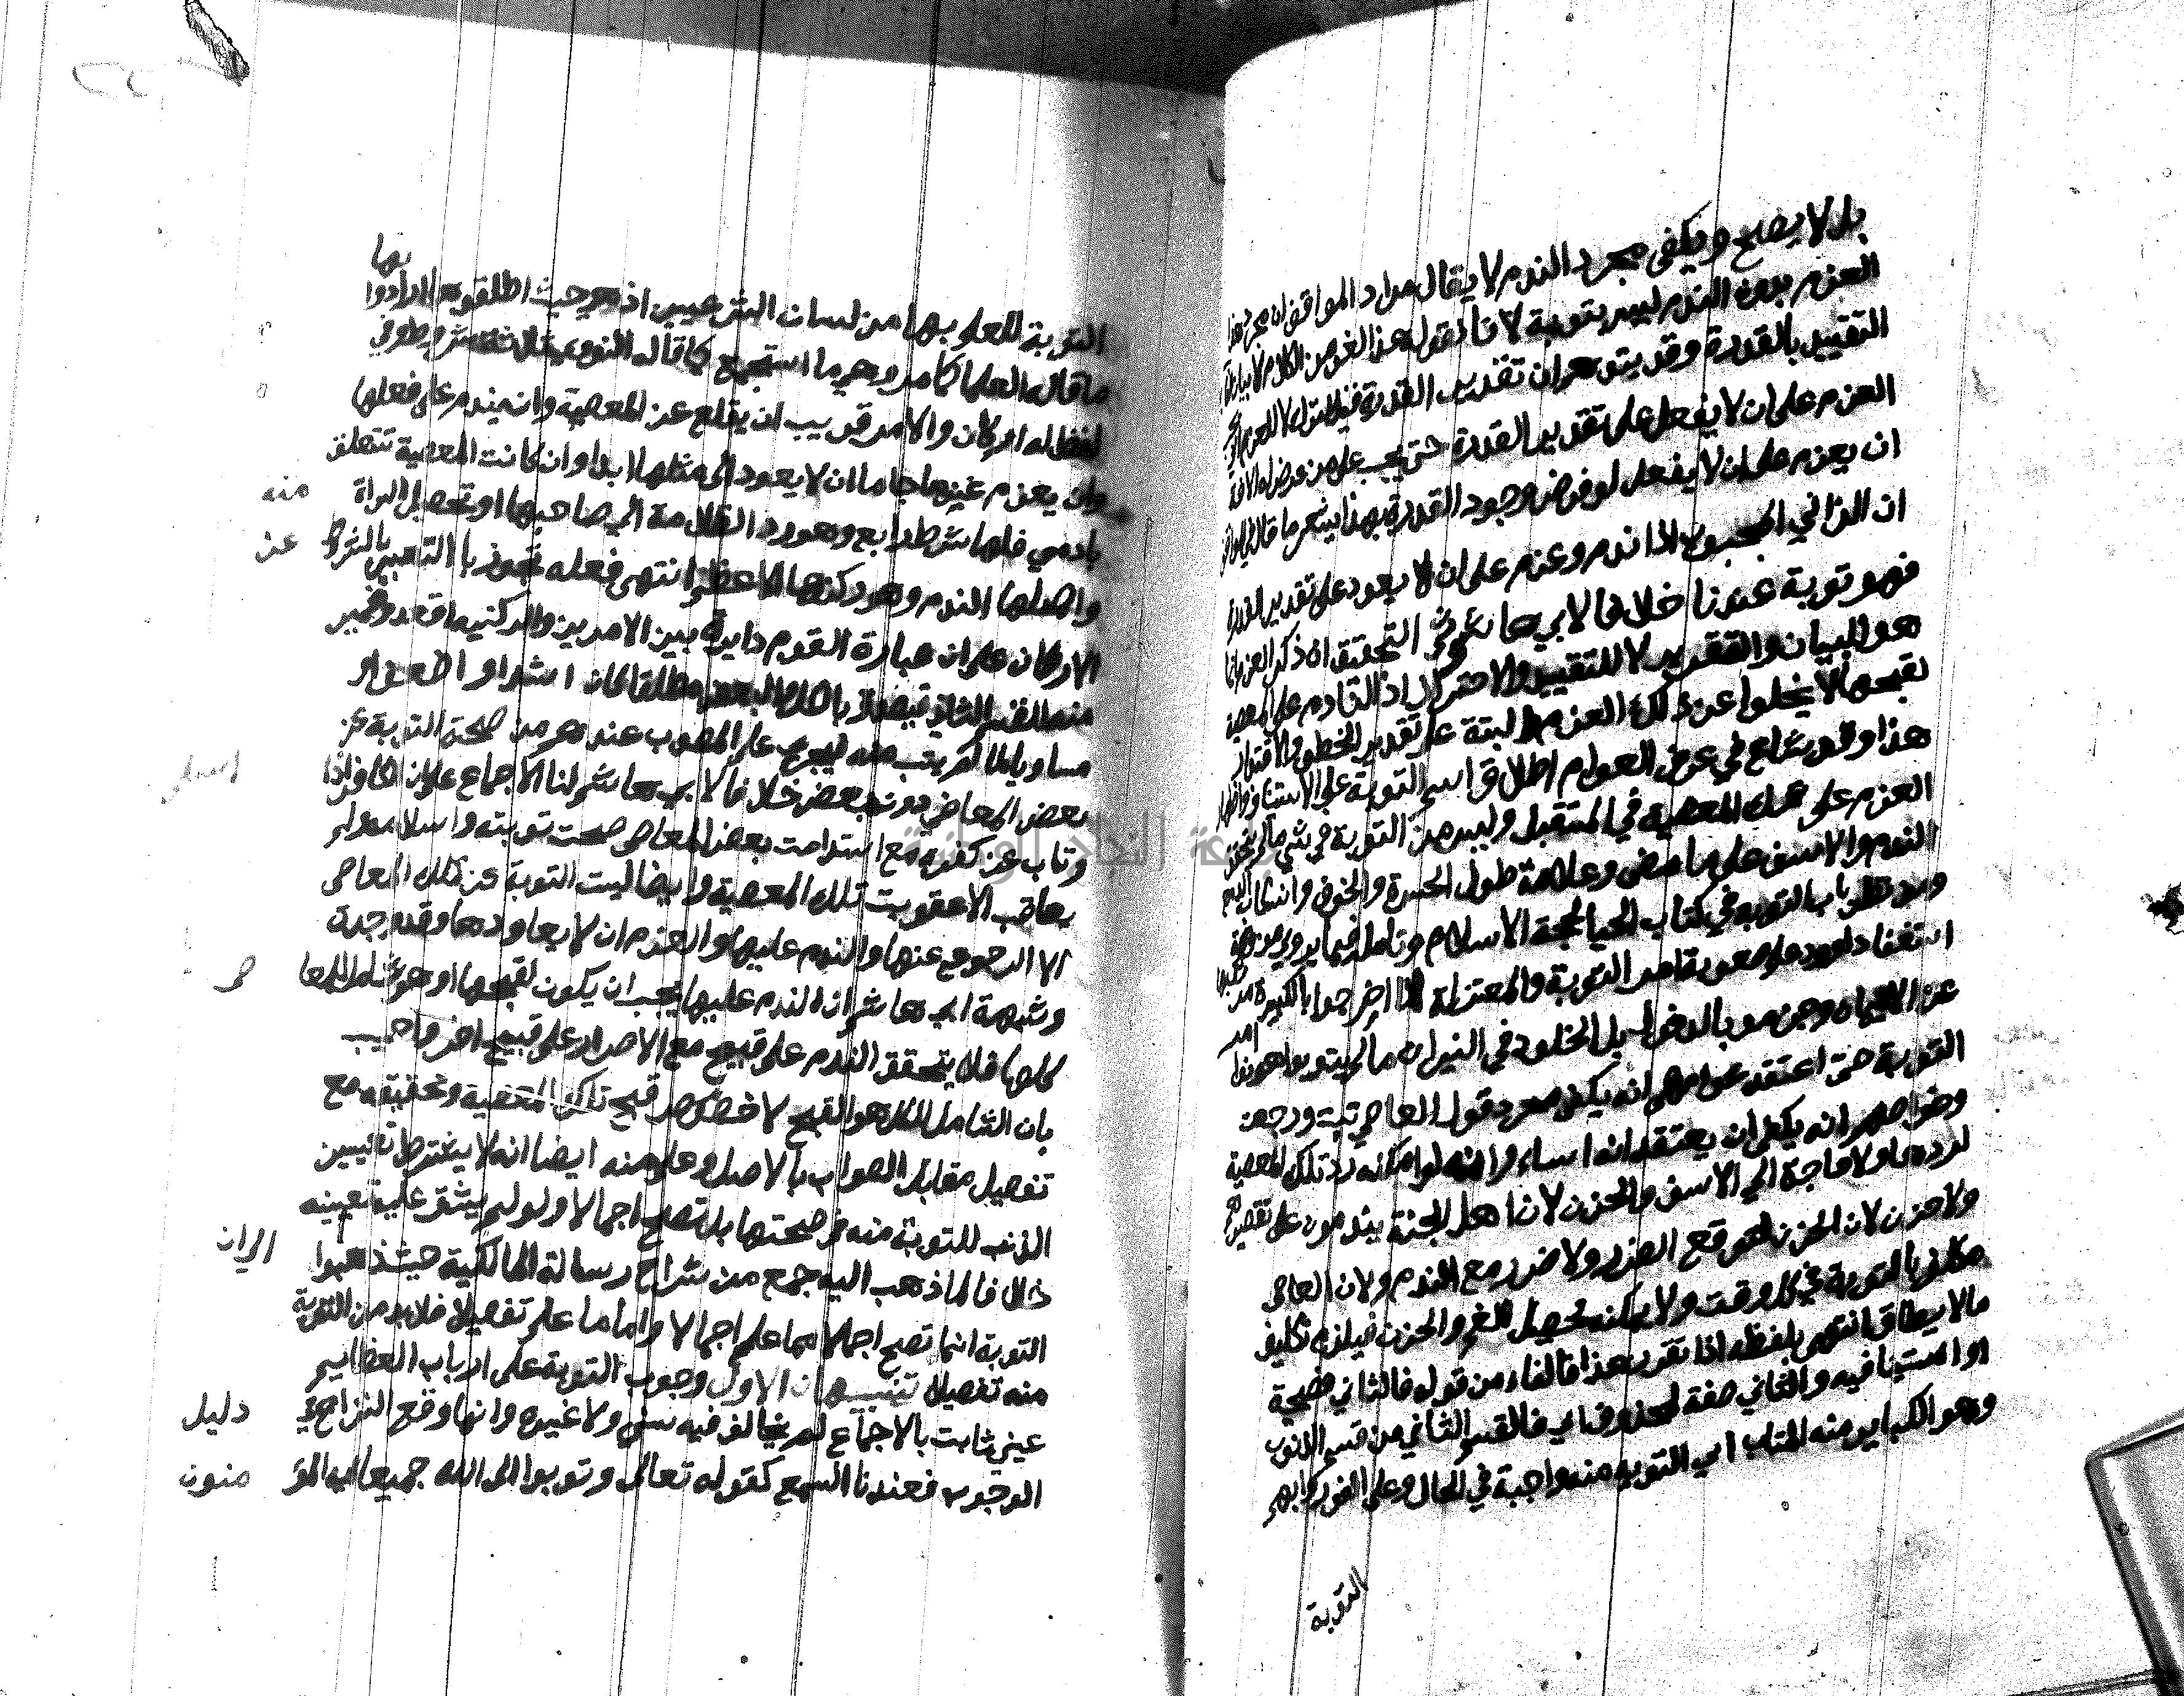 بل لا يصح ويكفى مجرد الندم لا يقال مراد المواقف ان مجرد هذا
العزم بدون الندم ليس بتوبة لا نا نقول هذا الغو من الكلام لا بيان
التقييد بالقدرة وقد يتوهم ان تقدير القدرة قيد للترك لا للعزم اي
العزم على ان لا يفعل على تقدير القدرة حتى يجب على من عرض له الافة
ان يعزم على ان لا يفعل لو فرض وجود القدرة بهذا يشعر ما قال في المواقف
ان الزاني المجبوب اذا ندم وعزم على ان لا يعود على تقدير القدرة
فهو توبة عندنا خلافا لابي هاشم ثم التحقيق ان ذكر العزم انما
هو للبيان والتقرير لا للتقييد والاحتراز اذ القادم على المعصية
لقبحها لا يخلوا عن ذلك العزم البتة على تقدير الخطور والاقتدار
هذا وقد شاع في عرف العوام اطلاق اسم التوبة على الاستيناف واظهار
العزم على ترك المعصية في المستقبل وليس هذا من التوبة في شي ما لم يتحقق
الندم والاسف على ما مضى وعلامة طول الحسرة والخوف وانسكاب الدمع
ومن نظر باب التوبة في كتاب الحيا لحجة الاسلام وتامل فيما يروى من قصة
استغفار داود علم صعوبة امر التوبة والمعتزلة لما اخرجوا بالكبيرة
عن الايمان وجزموا بالدخول بل الخلود في النيران ما لم يتوبوا هونوا امر
التوبة حتى اعتقد عوامهم انه يكفى مجرد قول العاصي تبت ورجعت
وخواصهم انه يكفى ان يعتقد انه اساء وانه لو امكنه رد تلك المعصية
لردها ولا حاجة الى الاسف والحزن لان اهل الجنة يندمون على تقصيرهم
ولا حزن لان الحزن لتوقع الضرر ولا ضرر مع الندم ولان العاصى
مكلف بالتوبة في كل وقت ولا يمكنه تحصيل الغم والحزن فيلزم تكليف
ما لا يطاق انتهى بلفظه اذا تقرر هذا فالفاء من قوله فالثاني فصيحة
او استينافيه والثاني صفة لمحذوف اي فالقسم الثاني من قسمي الذنوب
وهو الكباير منه المتاب اي التوبه منه واجبة في الحال وعلى الفور
التوبة
التوبة للعلم بها من لسان الشرعيين اذ هم حيث اطلقوها ارادوا بها
ما قاله العلما كما مر وهو ما استجمع كما قاله النووي ثلاثة شروط وفي
لفظ له اركان والامر قريب ان يقلع عن المعصية وان يندم على فعلها
وان يعزم عزما جازما ان لا يعود الى مثلها ابدا وان كانت المعصية تتعلق
بادمي فلها شرط رابع وهو رد الظلامة الى صاحبها او تحصيل البراة منه
واصلها الندم وهو ركنها الاعظم انتهى فعله تجوز با التعبير بالشروط عن
الاركان على ان عبارة القوم دايرة بين الامرين والركنيه اقعد وضمير
منه للقسم الثاني فيصدق بالكل والبعض مطلقا كان اشد او اضعف او
مساويا لما لم يتب منه فيجري على المصوب عندهم من صحة التوبة عن
بعض المعاصي دون بعض خلافا لابي هاشم لنا الاجماع على ان الكافر اذا اسلم
وتاب عن كفره مع استدامت بعض المعاصى صحت توبته واسلامه ولم
يعاقب الا عقوبت تلك المعصية وايضا ليست التوبة عن تلك المعاصى
الا الرجوع عنها والندم عليها والعزم ان لا يعاودها وقد وجدت
وشبهة ابي هاشم ان الندم عليها يجب ان يكون لقبحها او هو شامل للمعاصى
كلها فلا يتحقق الندم على قبيح مع الاصرار على قبيح اخر واجيب
بان الشامل للكل هو القبح لا خصوص قبح تلك المعصية وتحقيقه مع
تفصيل مقابل الصواب بالاصل وعلم منه ايضا انه لا يشترط تعيين
الذنب للتوبة منه في صحتها بل تصح اجمالا ولو لم يشق عليه تعيينه
خلافا لما ذهب اليه جمع من شراح رسالة المالكية حيث ذهبوا الى ان
التوبة انما تصح اجمالا مما علم اجمالا واما ما علم تفصيلا فلا بد من التوبة
منه تفصيلا تنبيهان الاول وجوب التوبة على ارباب العظايم
عينى ثابت بالاجماع لم يخالف فيه سني ولا غيره وانما وقع النزاع في دليل
الوجوب فعندنا السمع كقوله تعالى وتوبوا الى الله جميعا ايه المؤمنون